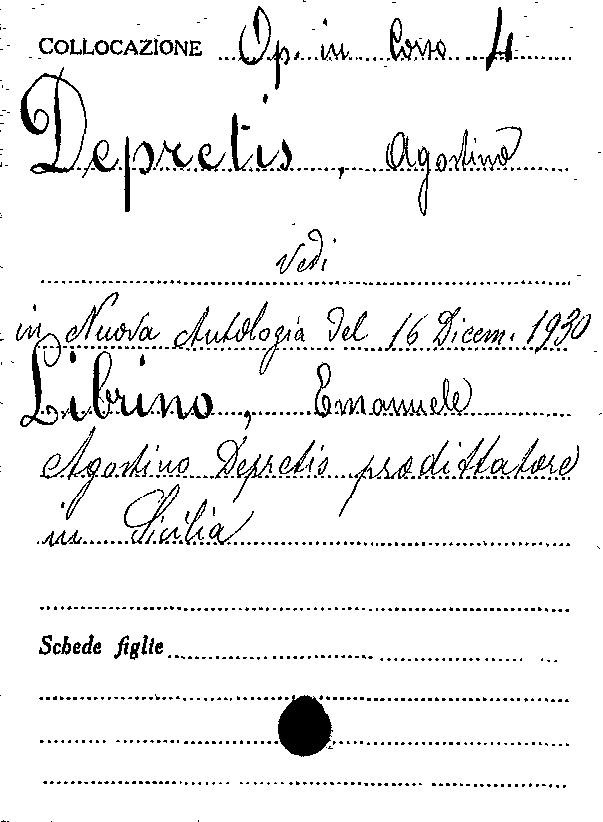 COLLOCAZIONE Op. in Corso 4
Depretis, Agostino
Vedi
in Nuova Antologia del 16 Dicem. 1930
Librino, Emanuele
Agostino Depretis prodittatore
in Sicilia
Schede figlie